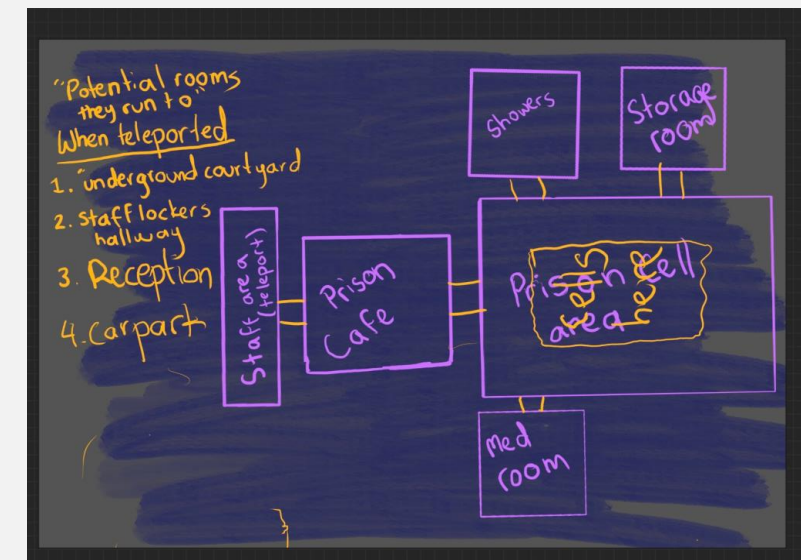 "Potential rooms
they run to"
When teleported
1. "underground courtyard
2. Staff lockers
hallway
3. Reception
4. carpart
Staff area
(teleport)
Prison
Cafe
showers
Storage
room
Prison cell
area
cells
here
Med
room